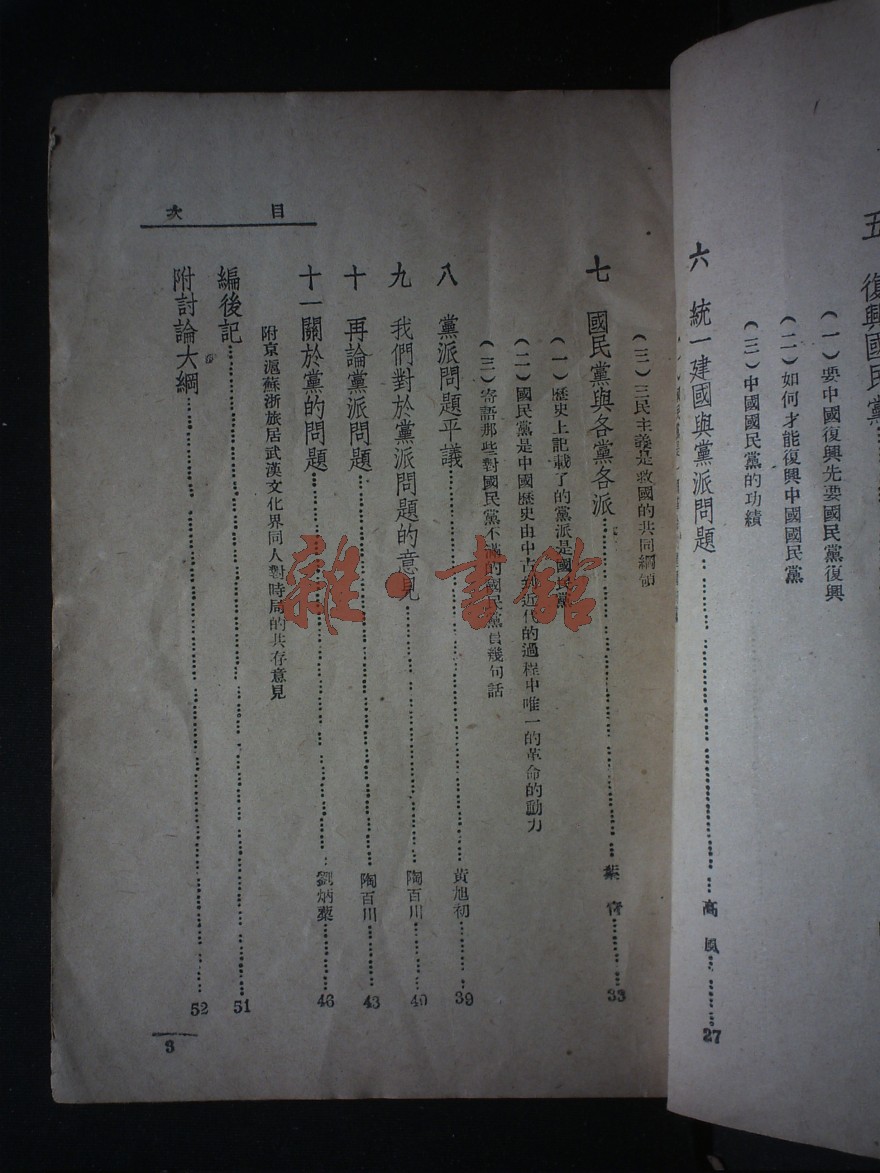 五 復興國民黨
（一）要中國復興先要國民黨復興
（二）如何才能復興中國國民黨
（三）中國國民黨的功績
六 統一建國與黨派問題 高風 27
（三）三民主義是救國的共同綱領
七 國民黨與各黨各派 葉青 33
（一）歷史上記載了的黨派是國民黨
（二）國民黨是中國歷史由中古到近代的過程中唯一的革命的動力
（三）寄語那些對國民黨不滿的國民黨員幾句話
八 黨派問題平議 黃旭初 39
九 我們對於黨派問題的意見 陶百川 40
十 再論黨派問題 陶百川 43
十一 關於黨的問題 劉炳藜 46
附京滬蘇浙旅居武漢文化界同人對時局的共存意見
編後記 51
附討論大綱 52
目次
3
雜·書館